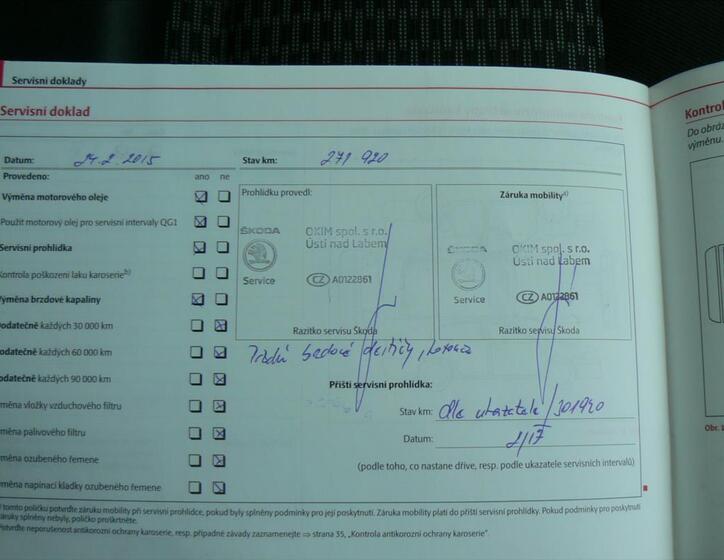 Servisní doklady
Servisní doklad
Datum: 24.2.2015 Stav km: 271 920
Provedeno: ano ne
Výměna motorového oleje
Použit motorový olej pro servisní intervaly QG1
Servisní prohlídka
Kontrola poškození laku karoserie b)
Výměna brzdové kapaliny
odatečně každých 30 000 km
odatečně každých 60 000 km
odatečně každých 90 000 km
měna vložky vzduchového filtru
měna palivového filtru
měna ozubeného řemene
měna napínací kladky ozubeného řemene
Prohlídku provedl:
ŠKODA
OKIM spol. s r.o.
Ústí nad Labem
Service
CZ A0122861
Razítko servisu Škoda
Záruka mobility a)
ŠKODA
OKIM spol. s r.o.
Ústí nad Labem
Service
CZ A0122861
Razítko servisu Škoda
Příští servisní prohlídka:
Stav km: dle ukazatele / 301920
Datum: 2/17
(podle toho, co nastane dříve, resp. podle ukazatele servisních intervalů)
tomto políčku potvrďte záruku mobility při servisní prohlídce, pokud byly splněny podmínky pro její poskytnutí. Záruka mobility platí do příští servisní prohlídky. Pokud podmínky pro poskytnutí
záruky splněny nebyly, políčko proškrtněte.
Potvrďte neporušenost antikorozní ochrany karoserie, resp. případné závady zaznamenejte ⇒ strana 35, „Kontrola antikorozní ochrany karoserie".
Kontrol
Do obrá
výměnu.
Obr.